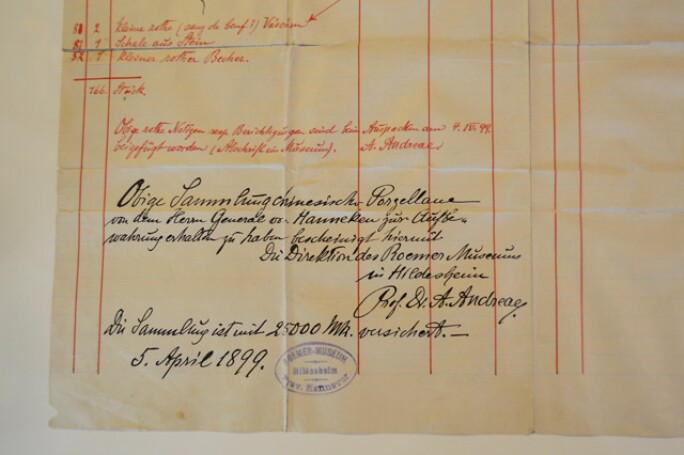 80 2 kleine rothe (sang de boeuf?) Väschen
81 1 Schale aus Stein
82 1 kleiner rother Becher.
166 Stück.
Obige rothe Notizen resp Berichtigungen sind beim Auspacken den 4. IV. 99.
beigefügt worden (Abschrift im Museum). A. Andreae
Obige Sammlung chinesischer Porzellane
von dem Herrn General von Hanneken zur Aufbe-
wahrung erhalten zu haben bescheinigt hiermit
Die Direktion des Roemer Museums
in Hildesheim
Prof. Dr. A. Andreae
Die Sammlung ist mit 25000 Mk. versichert.—
5. April 1899.
ROEMER-MUSEUM
Hildesheim
Prov. Hannover